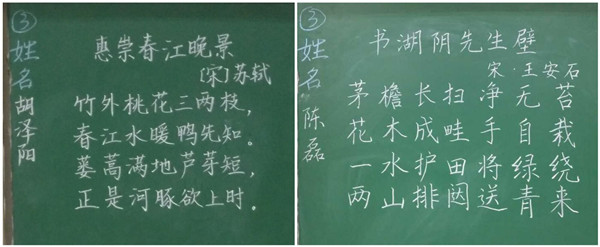 ③
姓名 胡泽阳
惠崇春江晚景
[宋]苏轼
竹外桃花三两枝，
春江水暖鸭先知。
蒌蒿满地芦芽短，
正是河豚欲上时。
③
姓名 陈磊
书湖阴先生壁
宋·王安石
茅檐长扫净无苔
花木成畦手自栽
一水护田将绿绕
两山排闼送青来